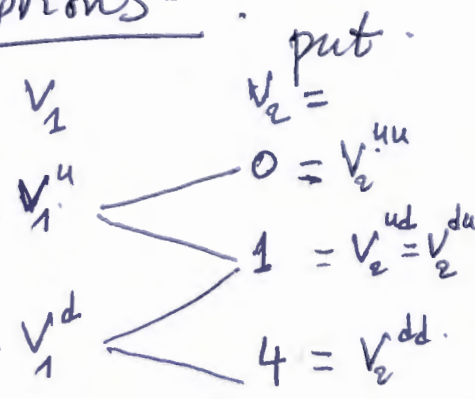 put.
V₁ V₂ =
V₁ᵘ 0 = V₂ᵘᵘ
1 = V₂ᵘᵈ = V₂ᵈᵘ
V₁ᵈ 4 = V₂ᵈᵈ.